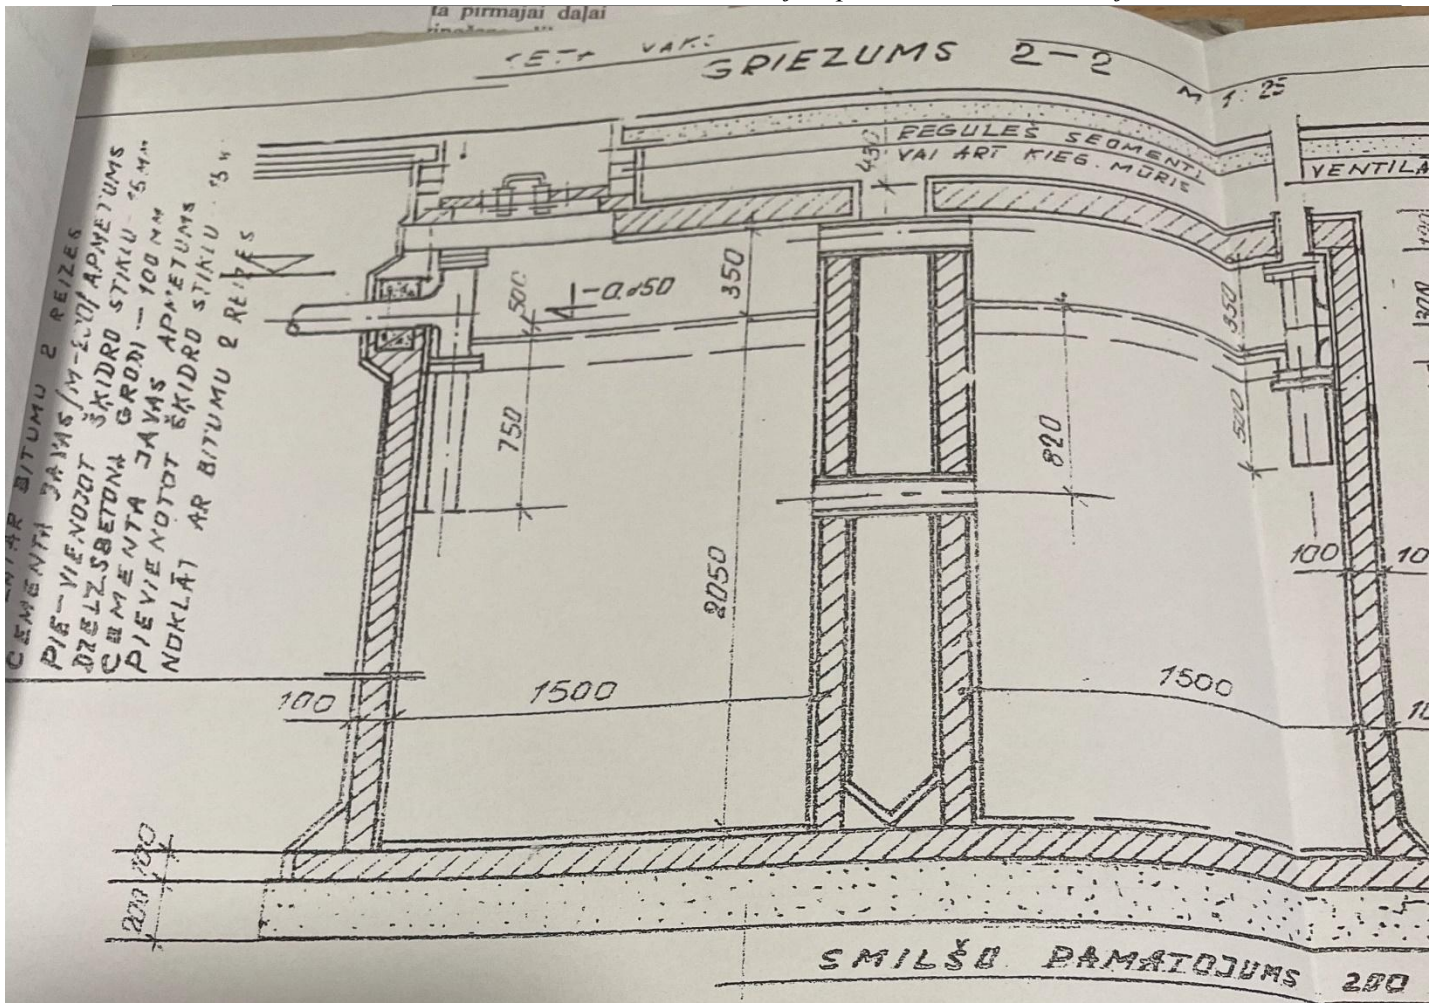 ta pirmajai daļai
GRIEZUMS 2-2
M 1:25
REGULEŠ SEGMENTI
VAI ARĪ ĶIEG. MŪRIS
VENTILĀ
450
CEMENTA JAVAS
PIE-VIENOJOT ŠĶIDRO STIKLU "5MM"
DZELZSBETONA GRODI - 100 MM
CEMENTA JAVAS APMETUMS
PIEVIENOTOT ŠĶIDRO STIKLU
NOKLĀT AR BITUMU 2 REIZES
500
-0.850
350
350
300
750
820
500
2050
100
100
1500
1500
100
100
200
SMILŠU PAMATOJUMS 200